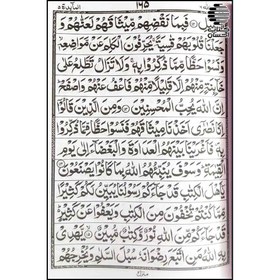 المآئدة ٥
١٦٥
بِيْلِ ۝ فَبِمَا نَقْضِهِمْ مِّيْثَاقَهُمْ لَعَنّٰهُمْ وَ
جَعَلْنَا قُلُوْبَهُمْ قٰسِيَةً يُحَرِّفُوْنَ الْكَلِمَ عَنْ مَّوَاضِعِهٖ
وَنَسُوْا حَظًّا مِّمَّا ذُكِّرُوْا بِهٖ وَلَا تَزَالُ تَطَّلِعُ عَلٰى
خَآئِنَةٍ مِّنْهُمْ اِلَّا قَلِيْلًا مِّنْهُمْ فَاعْفُ عَنْهُمْ وَاصْفَحْ
اِنَّ اللّٰهَ يُحِبُّ الْمُحْسِنِيْنَ ۝ وَمِنَ الَّذِيْنَ قَالُوْٓا
اِنَّا نَصٰرٰٓى اَخَذْنَا مِيْثَاقَهُمْ فَنَسُوْا حَظًّا مِّمَّا ذُكِّرُوْا
بِهٖ فَاَغْرَيْنَا بَيْنَهُمُ الْعَدَاوَةَ وَالْبَغْضَآءَ اِلٰى يَوْمِ
الْقِيٰمَةِ وَسَوْفَ يُنَبِّئُهُمُ اللّٰهُ بِمَا كَانُوْا يَصْنَعُوْنَ ۝
يٰٓاَهْلَ الْكِتٰبِ قَدْ جَآءَكُمْ رَسُوْلُنَا يُبَيِّنُ لَكُمْ كَثِيْرًا
مِّمَّا كُنْتُمْ تُخْفُوْنَ مِنَ الْكِتٰبِ وَيَعْفُوْا عَنْ كَثِيْرٍ
قَدْ جَآءَكُمْ مِّنَ اللّٰهِ نُوْرٌ وَّكِتٰبٌ مُّبِيْنٌ ۝ يَّهْدِيْ
بِهِ اللّٰهُ مَنِ اتَّبَعَ رِضْوَانَهٗ سُبُلَ السَّلٰمِ وَيُخْرِجُهُمْ